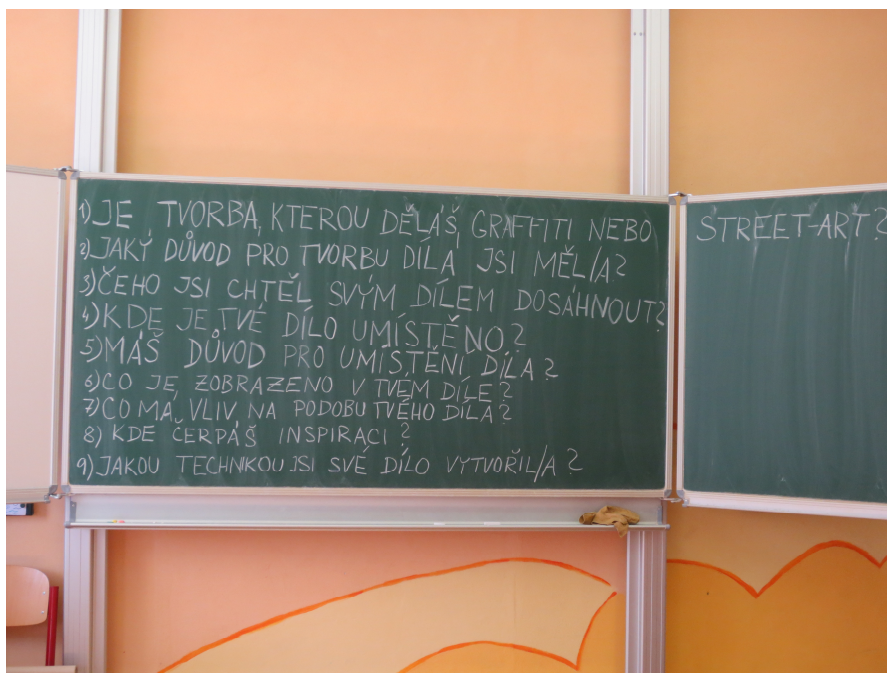 1) JE TVORBA, KTEROU DĚLÁŠ, GRAFFITI NEBO STREET-ART?
2) JAKÝ DŮVOD PRO TVORBU DÍLA JSI MĚL/A?
3) ČEHO JSI CHTĚL SVÝM DÍLEM DOSÁHNOUT?
4) KDE JE TVÉ DÍLO UMÍSTĚNO?
5) MÁŠ DŮVOD PRO UMÍSTĚNÍ DÍLA?
6) CO JE ZOBRAZENO V TVÉM DÍLE?
7) CO MÁ VLIV NA PODOBU TVÉHO DÍLA?
8) KDE ČERPÁŠ INSPIRACI?
9) JAKOU TECHNIKOU JSI SVÉ DÍLO VYTVOŘIL/A?